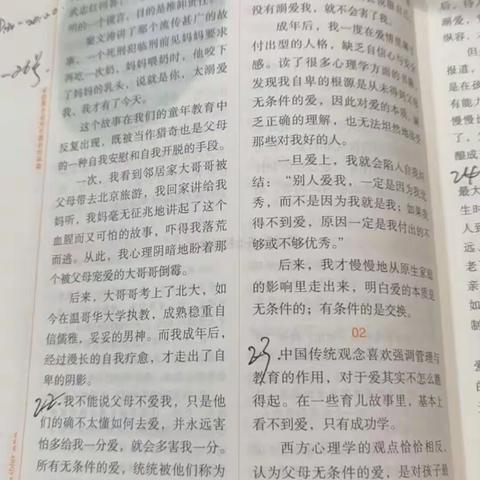 明的一个谎言,目的是推卸责任
案文涛讲了那个流传甚广的故
事,一个死刑犯临刑前见妈妈要求
再吃一次奶,妈妈喂奶时,他咬下
了妈妈的乳头,说就是你,太溺爱
我、我才有了今天。
这个故事在我们的童年教育中
反复出现,既被当作猎奇也是父母
的一种自我安慰和自我开脱的手段。
一次,我看到邻居家大哥哥被
父母带去北京旅游,我回家讲给我
妈听,我妈毫无征兆地讲起了这个
血腥而又可怕的故事,吓得我落荒
而逃。从此,我心理阴暗地盼着那
个被父母宠爱的大哥哥倒霉。
后来,大哥哥考上了北大,如
今在温哥华大学执教,成熟稳重自
信儒雅,妥妥的男神。而我成年后,
经过漫长的自我疗愈,才走出了自
卑的阴影。
22.我不能说父母不爱我,只是他
们的确不太懂如何去爱,并永远害
怕多给我一分爱,就会多害我一分。
所有无条件的爱,统统被他们称为
没有溺爱我,就不会害了我。
成年后,我一度在爱情里
付出型的人格,缺乏自信心与安
感。读了很多心理学方面的书籍
发现我自卑的根源是从未得到父母
无条件的爱,因此对爱的本质,缺
乏正确的理解,也无法坦然地接受
那些对我好的人。
一旦爱上,我就会陷入自我纠
结:“别人爱我,一定是因为我优
秀,而不是因为我就是我;如果我
得不到爱,原因一定是我付出的不
够或不够优秀。”
后来,我才慢慢地从原生家庭
的影响里走出来,明白爱的本质是
无条件的;有条件的是交换。
02
23.中国传统观念喜欢强调管理与
教育的作用,对于爱其实不怎么瞧
得起。在一些育儿故事里,基本上
看不到爱,只有成功学。
西方心理学的观点恰恰相反,
认为父母无条件的爱,是对孩子最
24